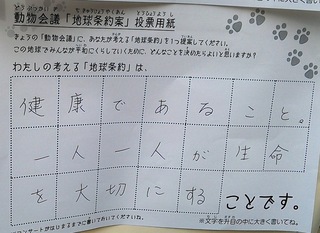 動物会議「地球条約案」投票用紙
きょうの「動物会議」に、あなたが考える「地球条約」を1つ提案してください。
この地球でみんなが平和にくらしていくために、どんなことを決めたらよいと思いますか?
わたしの考える「地球条約」は、
健康であること。
一人一人が生命
を大切にすることです。
※文字を升目の中に大きく書いてね。